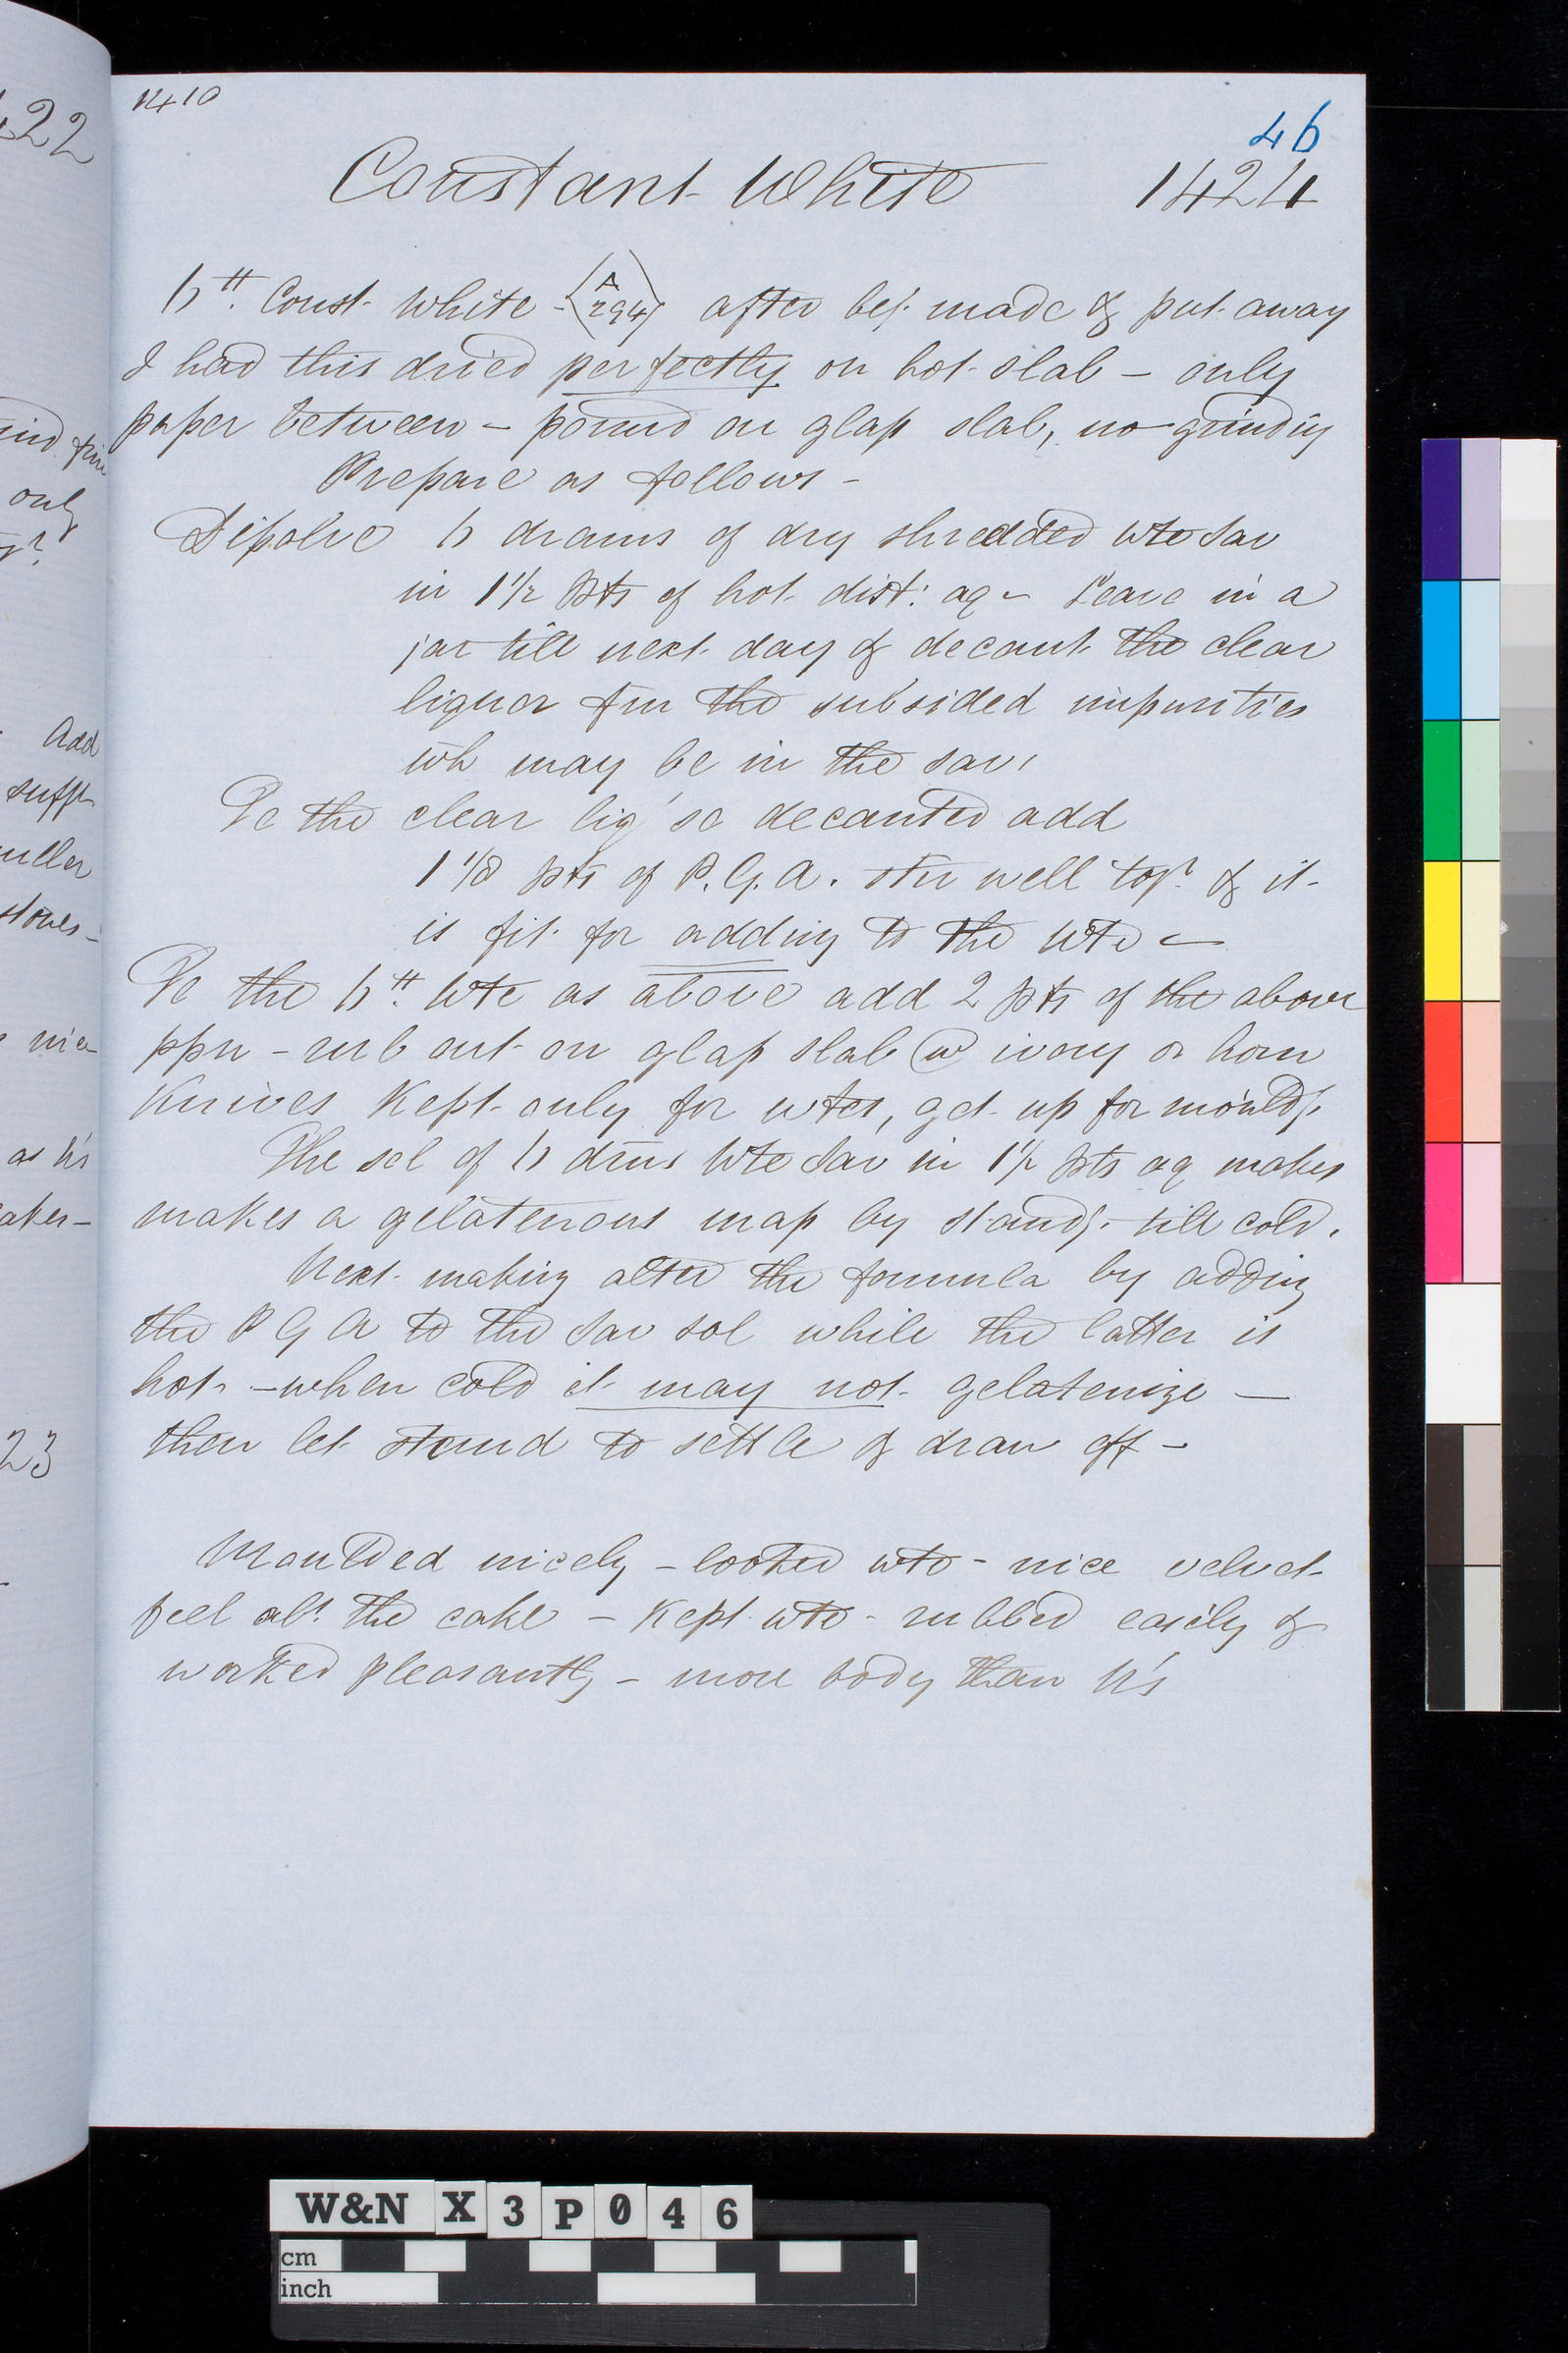 1410
46
Constant White 1424
6 ℔. Const. White - (A 294) after beg. made & put away
I had this dried perfectly on hot slab - only
paper between - pound on glass slab, no grinding
Prepare as follows -
Dissolve 6 drams of dry shredded wte Sav
in 1 1/2 pts of hot dist: aq - Leave in a
jar till next day & decant the clear
liquor frm the subsided impurities
wh may be in the sav.
To the clear liq' so decanted add
1 1/8 pts of P.G.A. stir well togr & it
is fit for adding to the Wte -
To the 6 ℔. Wte as above add 2 pts of the above
ppn - rub out on glass slab w ivory or horn
Knives Kept only for wtes, get up for mouldg.
The sol of 6 drms Wte Sav in 1 1/2 pts aq makes
makes a gelatenous mass by standg. till cold.
Next making alter the formula by adding
the P G A to the Sav sol while the latter is
hot. - when cold it may not gelatenize -
then let stand to settle & draw off -
Moulded nicely - looked wte - nice velvet
feel abt. the cake - Kept wte - rubbed easily &
worked pleasantly - more body than N's
422
only
Add
sufft
muller
stones -
nice
as N's
23
W&N X 3 P 0 4 6
cm
inch